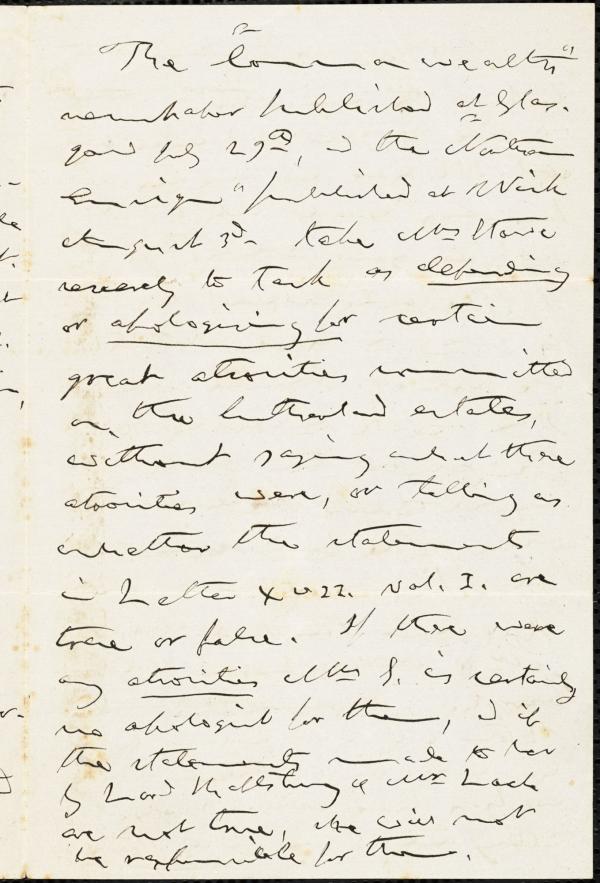 The "Commonwealth"
newspaper published at Glas-
gow July 29th, & the "Northern
Ensign" published at Wick
August 3d- take Mrs Stowe
severely to task as defending
or apologizing for certain
great atrocities committed
on the Sutherland estates,
without saying what these
atrocities were, or telling us
whether the statements
in Letter XVII. Vol. I. are
true or false. If there were
any atrocities Mrs S. is certainly
no apologist for them, & if
the statements made to her
by Lord Shaftsbury & Mr Loch
are not true, she will not
be responsible for them.